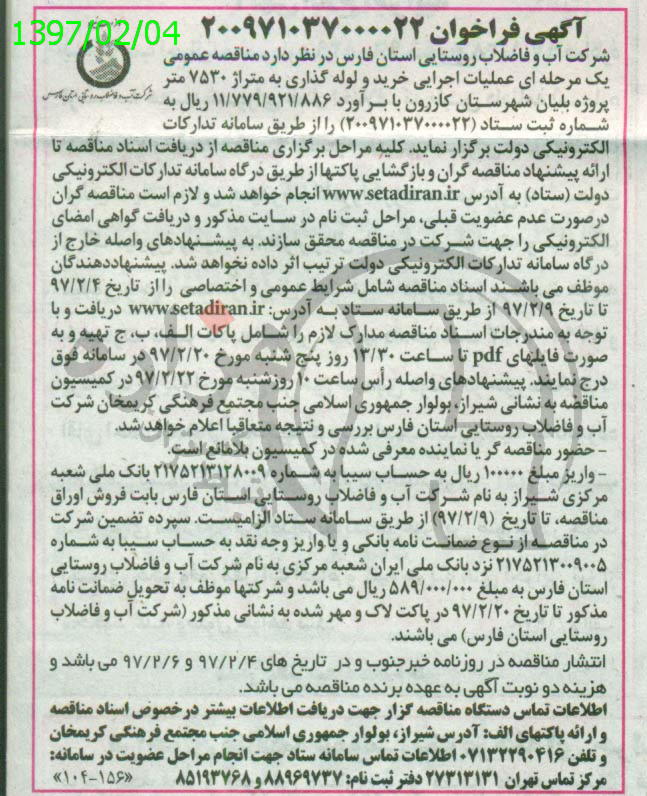 1397/02/04
آگهی فراخوان ۲۰۰۹۷۱۰۳۷۰۰۰۰۲۲
شرکت آب و فاضلاب روستایی استان فارس
شرکت آب و فاضلاب روستایی استان فارس در نظر دارد مناقصه عمومی
یک مرحله ای عملیات اجرایی خرید و لوله گذاری به متراژ ۷۵۳۰ متر
پروژه بلیان شهرستان کازرون با برآورد ۱۱/۷۷۹/۹۲۱/۸۸۶ ریال به
شماره ثبت ستاد (۲۰۰۹۷۱۰۳۷۰۰۰۰۲۲) را از طریق سامانه تدارکات
الکترونیکی دولت برگزار نماید. کلیه مراحل برگزاری مناقصه از دریافت اسناد مناقصه تا
ارائه پیشنهاد مناقصه گران و بازگشایی پاکتها از طریق درگاه سامانه تدارکات الکترونیکی
دولت (ستاد) به آدرس www.setadiran.ir انجام خواهد شد و لازم است مناقصه گران
درصورت عدم عضویت قبلی، مراحل ثبت نام در سایت مذکور و دریافت گواهی امضای
الکترونیکی را جهت شرکت در مناقصه محقق سازند. به پیشنهادهای واصله خارج از
درگاه سامانه تدارکات الکترونیکی دولت ترتیب اثر داده نخواهد شد. پیشنهاددهندگان
موظف می باشند اسناد مناقصه شامل شرایط عمومی و اختصاصی را از تاریخ ۹۷/۲/۴
تا تاریخ ۹۷/۲/۹ از طریق سامانه ستاد به آدرس: www.setadiran.ir دریافت و با
توجه به مندرجات اسناد مناقصه مدارک لازم را شامل پاکات الف، ب، ج تهیه و به
صورت فایلهای pdf تا ساعت ۱۳/۳۰ روز پنج شنبه مورخ ۹۷/۲/۲۰ در سامانه فوق
درج نمایند. پیشنهادهای واصله رأس ساعت ۱۰ روزشنبه مورخ ۹۷/۲/۲۲ در کمیسیون
مناقصه به نشانی شیراز، بولوار جمهوری اسلامی جنب مجتمع فرهنگی کریمخان شرکت
آب و فاضلاب روستایی استان فارس بررسی و نتیجه متعاقباً اعلام خواهد شد.
- حضور مناقصه گر یا نماینده معرفی شده در کمیسیون بلامانع است.
- واریز مبلغ ۱۰۰۰۰۰ ریال به حساب سیبا به شماره ۲۱۷۵۲۱۳۱۲۸۰۰۹ بانک ملی شعبه
مرکزی شیراز به نام شرکت آب و فاضلاب روستایی استان فارس بابت فروش اوراق
مناقصه، تا تاریخ (۹۷/۲/۹) از طریق سامانه ستاد الزامیست. سپرده تضمین شرکت
در مناقصه از نوع ضمانت نامه بانکی و یا واریز وجه نقد به حساب سیبا به شماره
۲۱۷۵۲۱۳۰۰۹۰۰۵ نزد بانک ملی ایران شعبه مرکزی به نام شرکت آب و فاضلاب روستایی
استان فارس به مبلغ ۵۸۹/۰۰۰/۰۰۰ ریال می باشد و شرکتها موظف به تحویل ضمانت نامه
مذکور تا تاریخ ۹۷/۲/۲۰ در پاکت لاک و مهر شده به نشانی مذکور (شرکت آب و فاضلاب
روستایی استان فارس) می باشند.
انتشار مناقصه در روزنامه خبرجنوب و در تاریخ های ۹۷/۲/۴ و ۹۷/۲/۶ می باشد و
هزینه دو نوبت آگهی به عهده برنده مناقصه می باشد.
اطلاعات تماس دستگاه مناقصه گزار جهت دریافت اطلاعات بیشتر درخصوص اسناد مناقصه
و ارائه پاکتهای الف: آدرس شیراز، بولوار جمهوری اسلامی جنب مجتمع فرهنگی کریمخان
و تلفن ۰۷۱۳۲۲۹۰۴۱۶ اطلاعات تماس سامانه ستاد جهت انجام مراحل عضویت در سامانه:
مرکز تماس تهران ۲۷۳۱۳۱۳۱ دفتر ثبت نام: ۸۸۹۶۹۷۳۷ و ۸۵۱۹۳۷۶۸
«۱۰۴-۱۵۶»